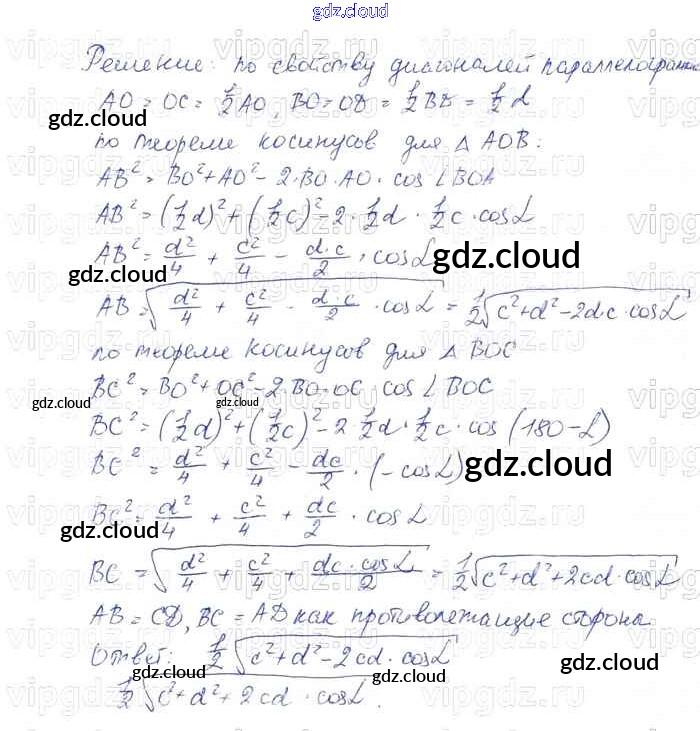 gdz.cloud
Решение: по свойству диагоналей параллелограмма
AO = OC = 1/2 AO, BO = OD = 1/2 BD = 1/2 d
gdz.cloud
по теореме косинусов для △ AOB:
AB² = BO² + AO² - 2·BO·AO·cos∠BOA
AB² = (1/2 d)² + (1/2 c)² - 2·1/2 d·1/2 c·cos L
AB² = d²/4 + c²/4 - d·c/2 · cos L
gdz.cloud
gdz.cloud
AB = √(d²/4 + c²/4 - d·c/2 · cos L) = 1/2 √(c² + d² - 2d·c·cos L)
по теореме косинусов для △ BOC
BC² = BO² + OC² - 2·BO·OC·cos∠BOC
gdz.cloud
gdz.cloud
BC² = (1/2 d)² + (1/2 c)² - 2·1/2 d·1/2 c·cos (180 - L)
BC² = d²/4 + c²/4 - dc/2 · (-cos L)
gdz.cloud
BC² = d²/4 + c²/4 + dc/2 · cos L
gdz.cloud
BC = √(d²/4 + c²/4 + dc·cos L/2) = 1/2 √(c² + d² + 2cd·cos L)
AB = CD, BC = AD как противолежащие сторона
Ответ: 1/2 √(c² + d² - 2cd·cos L)
gdz.cloud
gdz.cloud
1/2 √(c² + d² + 2cd·cos L).
gdz.cloud